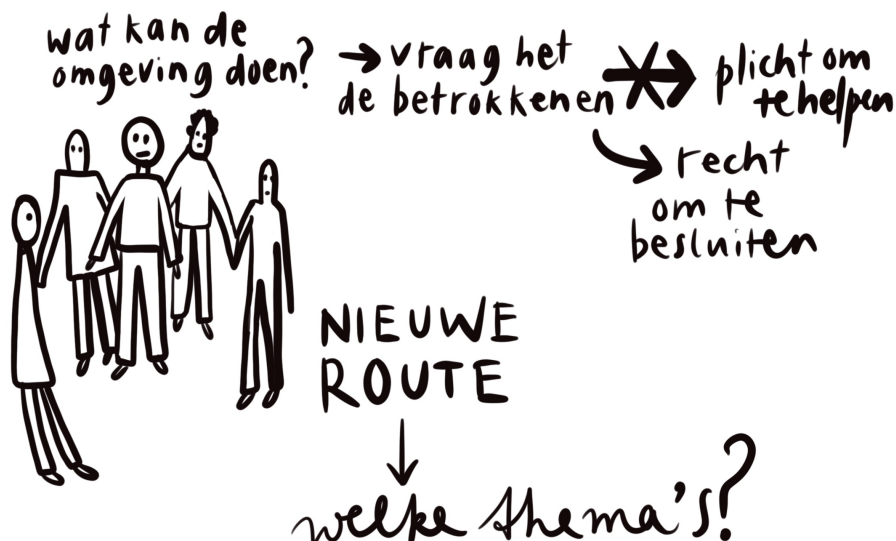 wat kan de
omgeving doen?
→ vraag het
de betrokkenen
plicht om
te helpen
recht
om te
besluiten
NIEUWE
ROUTE
welke thema's?